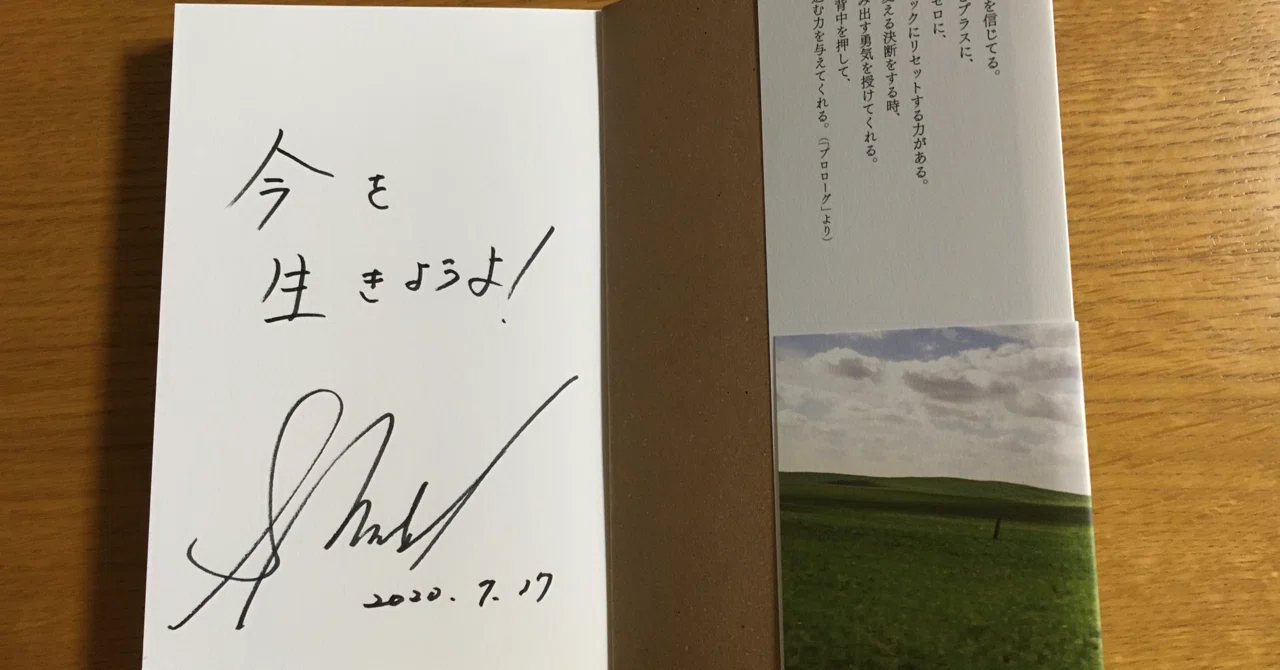 今を
生きようよ!
2020.7.17
を信じてる。
プラスに、
ゼロに、
ックにリセットする力がある。
変える決断をする時、
み出す勇気を授けてくれる。
背中を押して、
込む力を与えてくれる。(「プロローグ」より)